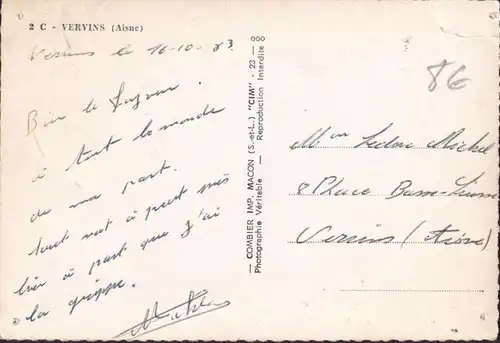 2 C - VERVINS (Aisne)
Vervins le 16-10-83
Bien le
à tout le monde
de ma part.
tout va à peut près
bien à part que j'ai
la grippe.
COMBIER IMP. MACON (S.-et-L.) "CIM" - 23 - 000
Photographie Véritable — Reproduction Interdite
86
Leduc Michel
8 Place
Vervins (Aisne)